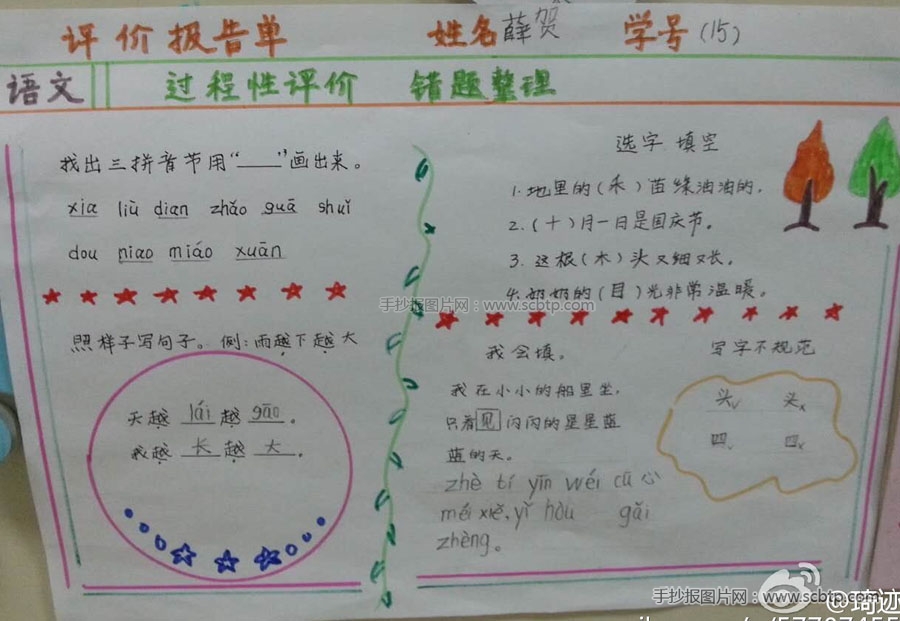 评价报告单 姓名 薛贺 学号(15)
语文 过程性评价 错题整理
找出三拼音节用“——”画出来。
xia liù dian zhǎo guā shuǐ
dou niao miáo xuān
照样子写句子。例:雨越下越大
天越 lái 越 gāo 。
我越 长 越 大 。
选字填空
1.地里的(禾)苗绿油油的。
2.(十)月一日是国庆节。
3.这根(木)头又细又长。
4.奶奶的(目)光非常温暖。
我会填。
我在小小的船里坐,
只看见闪闪的星星蓝
蓝的天。
zhè tí yīn wéi cū 心
méi xiě,yǐ hòu gǎi
zhèng。
写字不规范
头√ 头×
四√ 四×
手抄报图片网:www.scbtp.com
手抄报图片网:www.scbtp.com
@琦迹